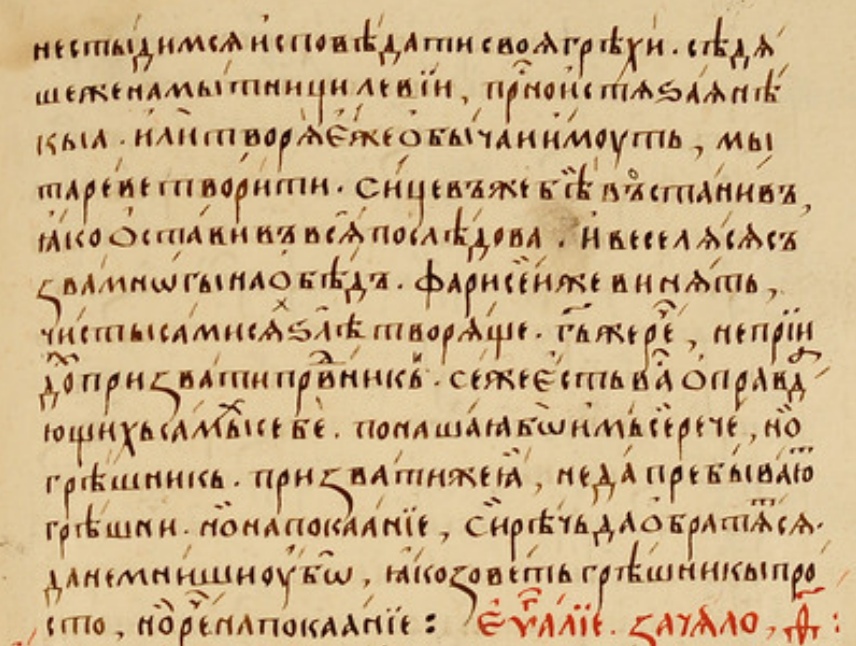 нестыдимсѧ исповѣдати своѧ грѣхи. сѣдѧ
щеженамытници левїи, прⷭ҇ноистѧꙃаѧнѣ
кыа. илитворѧ ежеобычаиимоуть, мы
тареветворити. сицевъжебѣ въстанивъ,
ꙗкооставивъ всѧ послѣдова. ивеселѧсѧсъ
ꙁвамнѡгыинаобѣдъ. фарисеижевинѧть,
чистысамисѧ ꙃлѣ творѧще. гь҃жере҇, неприїи
до призвати првⷣникь. сежеесть ва оправд
ющихьсамѣхьсебе. поношаꙗбѡимьсерече, но
грѣшникь. призватижеꙗ, недапребываю
грѣшни. нонапокаанїе, сирѣчьдаобратѧсѧ.
данемнишиоубѡ, ꙗкозоветьгрѣшникыпро
сто, норе҇напокаанїе: еѵⷢ҇алїе. зачѧло,